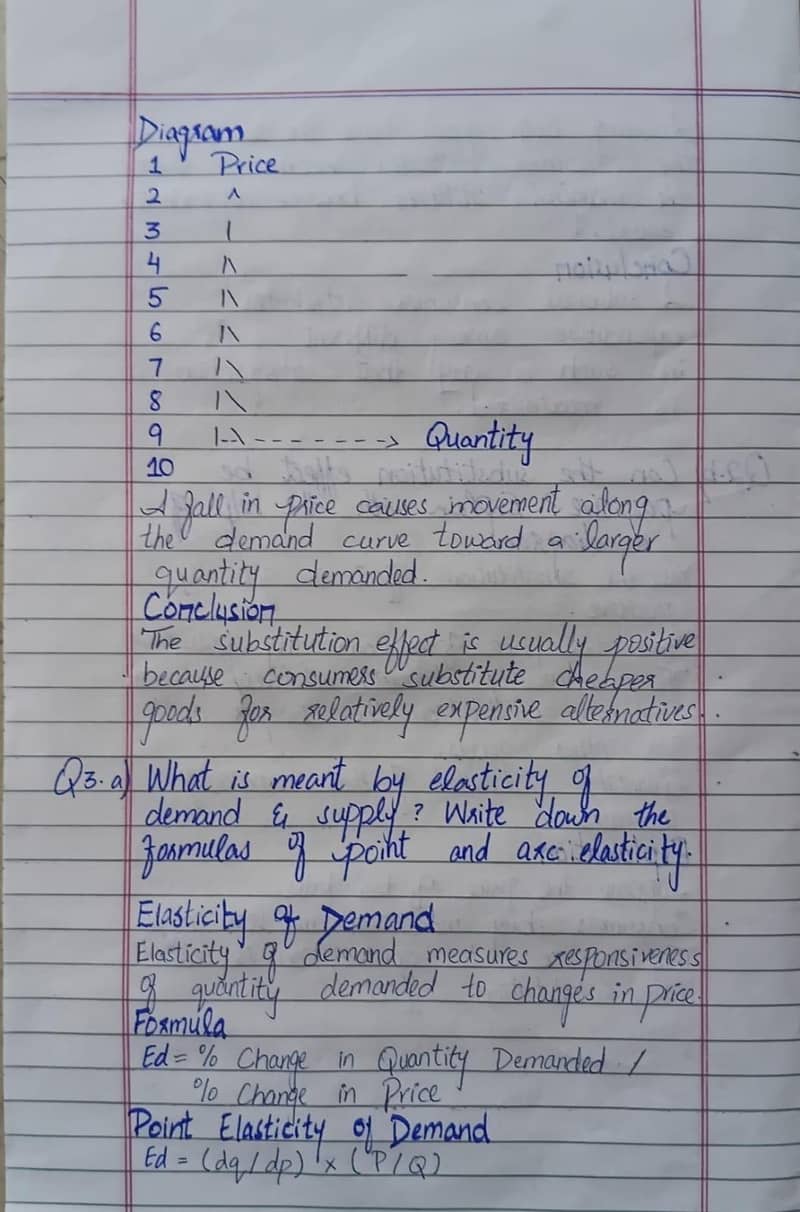 Diagram
1 Price
2 ^
3 |
4 |\
5 |\
6 |\
7 |\
8 |\
9 |--\-------> Quantity
10
A fall in price causes movement along
the demand curve toward a larger
quantity demanded.
Conclusion
The substitution effect is usually positive
because consumers substitute cheaper
goods for relatively expensive alternatives.
Q3.a) What is meant by elasticity of
demand & supply? Write down the
formulas of point and arc elasticity.
Elasticity of Demand
Elasticity of demand measures responsiveness
of quantity demanded to changes in price.
Formula
Ed = % Change in Quantity Demanded /
% Change in Price
Point Elasticity of Demand
Ed = (dq/dp) x (P/Q)